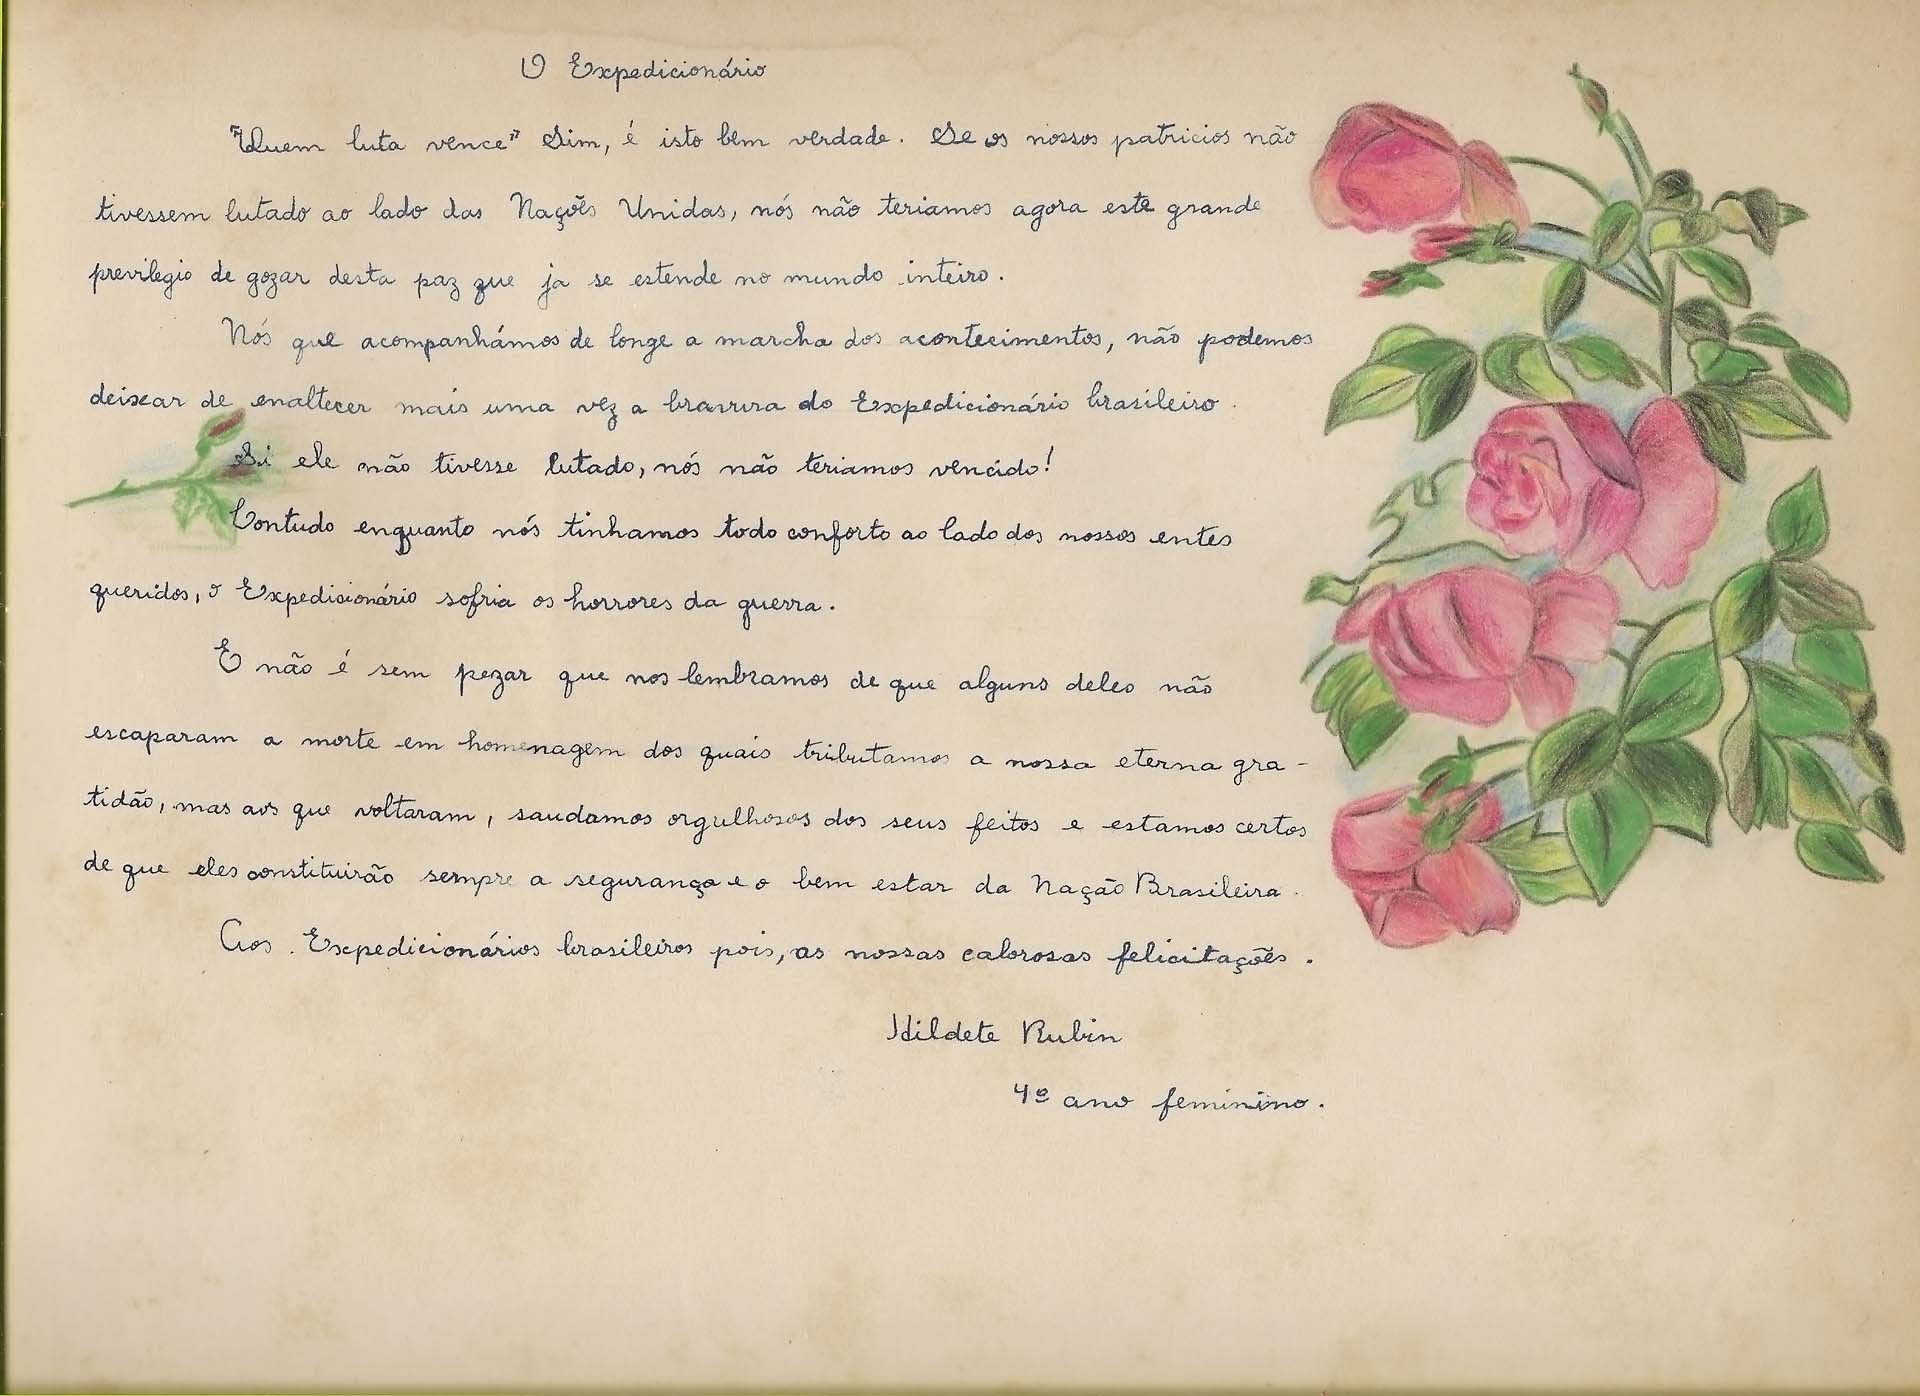 O Expedicionário
"Quem luta vence" Sim, é isto bem verdade. Se os nossos patricios não
tivessem lutado ao lado das Nações Unidas, nós não teriamos agora este grande
previlegio de gozar desta paz que ja se estende no mundo inteiro.
Nós que acompanhámos de longe a marcha dos acontecimentos, não podemos
deixar de enaltecer mais uma vez a bravura do Expedicionário brasileiro.
Si ele não tivesse lutado, nós não teriamos vencido!
Contudo enquanto nós tinhamos todo conforto ao lado dos nossos entes
queridos, o Expedicionário sofria os horrores da guerra.
E não é sem pezar que nos lembramos de que alguns deles não
escaparam a morte em homenagem dos quais tributamos a nossa eterna gra-
tidão, mas aos que voltaram, saudamos orgulhosos dos seus feitos e estamos certos
de que eles constituirão sempre a segurança e o bem estar da Nação Brasileira.
Aos Expedicionários brasileiros pois, as nossas calorosas felicitações.
Hildete Rubin
4º ano feminino.